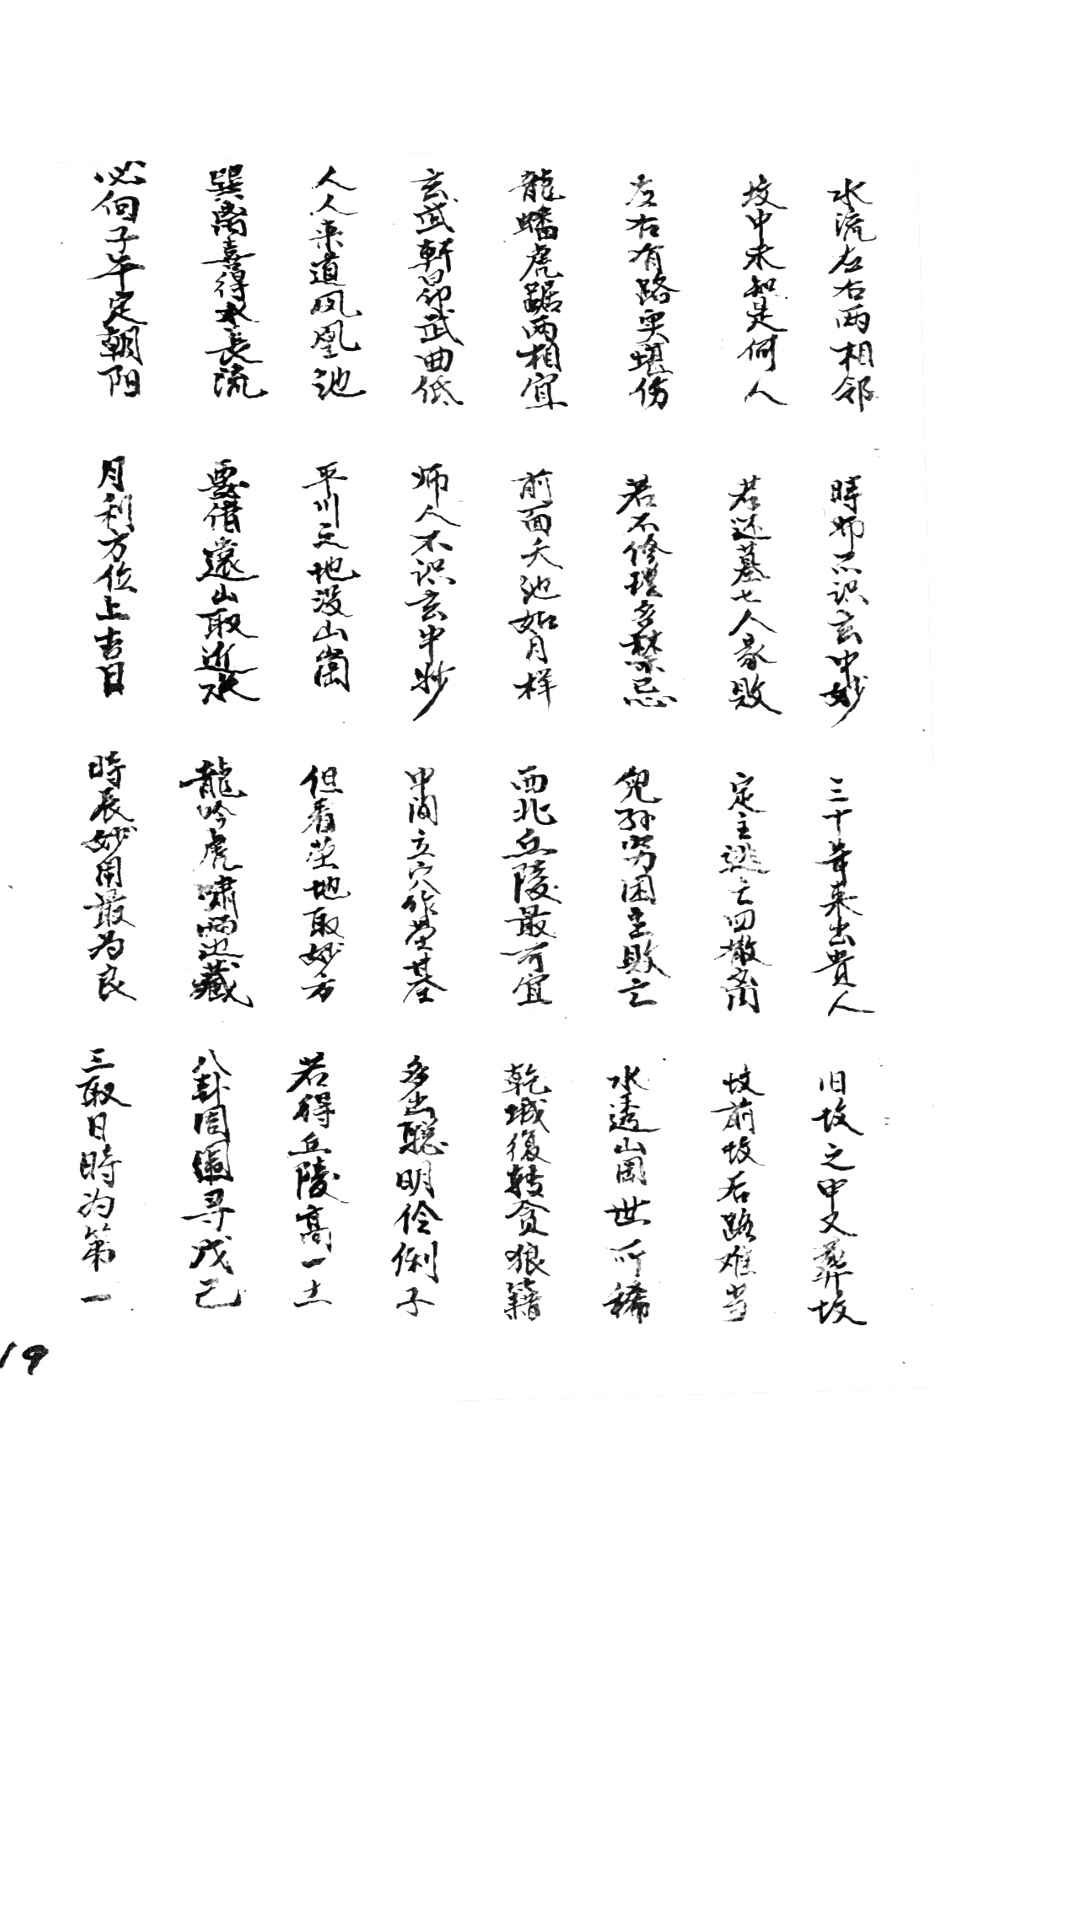 水流左右两相邻 時师不识玄中妙 三十年来出貴人 旧坟之中又葬坟
坟中未知是何人 若还墓七人家败 定主逃亡四散离 坟前坟后路难当
左右有路实堪伤 若不修理多禁忌 兒孙劳困主败亡 水透山围世所稀
龍蟠虎踞两相宜 前面天池如月样 西北丘陵最可宜 乾城復转贪狼籍
玄武軒昂武曲低 师人不识玄中妙 中间立穴作塋基 多出聪明伶俐子
人人来道凤凰池 平川之地没山崗 但看塋地取妙方 若得丘陵高一土
巽离喜得水長流 要借遠山取近水 龍吟虎啸两边藏 八卦周圍寻戊己
必向子午定朝阳 月利方位上吉日 時辰妙用最为良 三取日時为第一
19